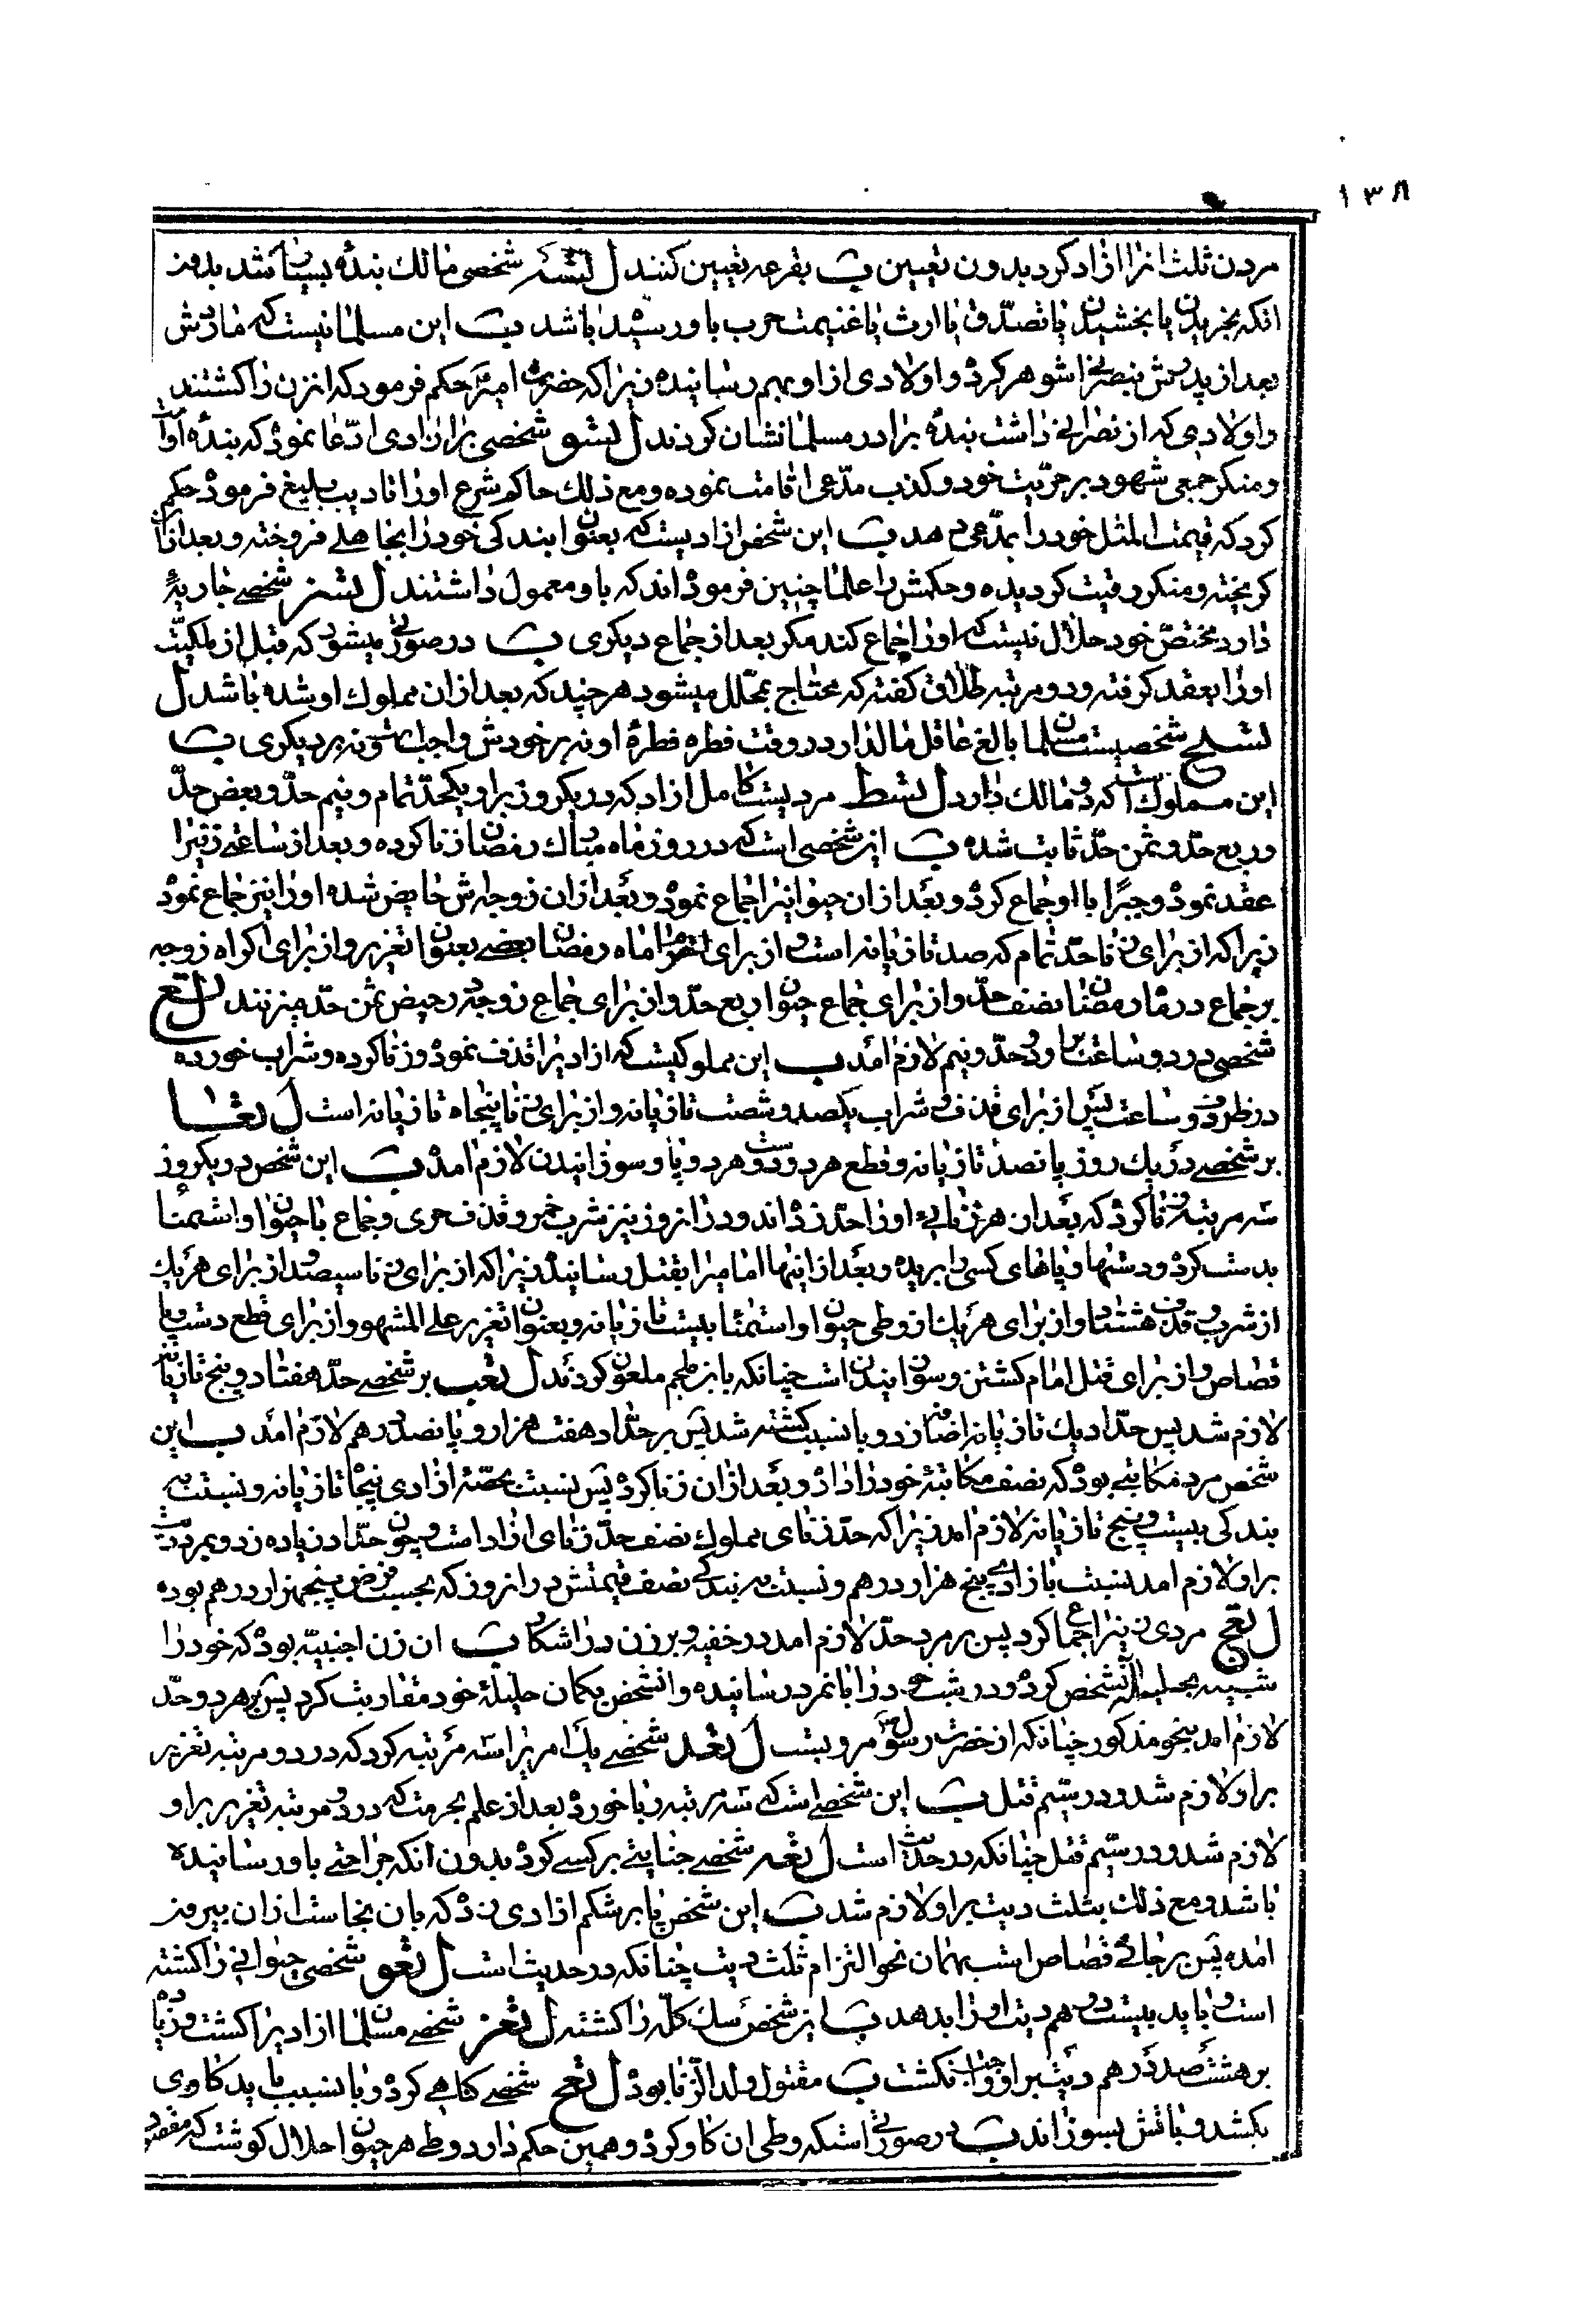 ۱۳۸
مردن ثلث انرا ازاد کرد بدون تعیین ب بقرعه تعیین کنند ل شخصی مالك بندۀ بسیار شد بدون
انکه بخریدن یا بخشیدن یا تصدّق یا ارث یا غنیمت حرب باو رسیده باشد ب این مسلمانیست که مادرش
بعد از پدرش بنصرانی شوهر کرده و اولادی از او بهم رسانیده زیرا که حضرت امیر حکم فرمود که انزن را کشتند
و اولادی که از نصرانی داشت بندۀ برادر مسلمانشان کردند ل لشو شخصی بر ازادی ادّعا نموده که بندۀ او
و منکر جمعی شهود بر حرّیت خود و کذب مدّعی اقامت نموده و مع ذلك حاکم شرع او را تادیب بلیغ فرموده حکم
کرد که قیمت المثل خود را بمدّعی دهد ب این شخص ازادیست که بعنوان بندکی خود را بجاهلی فروخته و بعد از ان
کریخته و منکر رقیت کردیده و حکمش را علما چنین فرموده اند که باو معمول داشتند ل لشز شخصی جاریۀ
دارد مختصّ خود حلال نیست که او را جماع کند مکر بعد از جماع دیکری ب در صورتی میشود که قبل از ملکیّت
او را بعقد کرفته و دو مرتبه طلاق کفته که محتاج بمحلّل میشود هرچند که بعد از ان مملوك او شده باشد ل
لشح شخصیست مسلمان بالغ عاقل مالدار در وقت فطره فطرۀ او نه بر خودش واجب شود نه بر دیکری ب
این مملوك است که دو مالك دارد ل لشط مردیست کامل ازاد که در یکروز بر او یکحدّ تمام و نیم حدّ و بعض حدّ
و ربع حدّ و ثمن حدّ ثابت شده ب این شخصی است که در روز ماه مبارك رمضان زنا کرده و بعد از ساعتی زنیرا
عقد نموده و جبرًا با او جماع کرده و بعد از ان حیوانیرا جماع نموده و بعد از ان زوجه اش حایض شده او را نیز جماع نموده
زیرا که از برای زنا حدّ تمام که صد تازیانه است و از برای احترام ماه رمضان بعضی بعنوان تعزیر و از برای اکراه زوجه
بر جماع در ماه رمضان نصف حدّ و از برای جماع حیوان ربع حدّ و از برای جماع زوجه در حیض ثمن حدّ میزنند ل لع
شخصی در دو ساعت بر او دو حدّ و نیم لازم امد ب این مملوکیست که ازادیرا قذف نموده و زنا کرده و شراب خورده
در ظرف دو ساعت پس از برای قذف و شراب یکصد و شصت تازیانه و از برای زنا پنجاه تازیانه است ل لعا
بر شخصی در یك روز پانصد تازیانه و قطع هر دو دست و هر دو پا و سوزانیدن لازم امده ب این شخص در یکروز
سه مرتبه زنا کرده که بعد از هر زنایی او را حدّ زده اند و در انروز نیز شرب خمر و قذف حری و جماع با حیوان و استمنا
بدست کرده و دستها و پاهای کسی را بریده و بعد از اینها امامیرا بقتل رسانیده زیرا که از برای زنا سیصد و از برای هر یك
از شرب و قذف هشتاد و از برای هر یك از وطی حیوان و استمنا بیست تازیانه بعنوان تعزیر علی المشهور و از برای قطع دست و پا
قصاص و از برای قتل امام کشتن و سوزانیدن است چنانکه با ابن ملجم ملعون کردند ل لعب بر شخصی حدّ هفتاد و پنج تازیانه
لازم شد پس حدّاد یك تازیانه اضافه زد و بانسبب کشته شد پس بر حدّاد هفت هزار و پانصد درهم لازم امد ب این
شخص مرد مکاتبی بوده که نصف مکاتبۀ خود را داده و بعد از ان زنا کرده پس نسبت بحصّۀ ازادی پنجاه تازیانه و نسبت به
بندکی بیست و پنج تازیانه لازم امد زیرا که حدّ زنای مملوك نصف حدّ زنای ازاد است و چون حدّاد زیاده زد و بمرد دیت
بر او لازم امد نسبت بازادی پنج هزار درهم و نسبت به بندکی نصف قیمتش در انروز که بحسب فرض پنجهزار درهم بوده
ل لعج مردی زنیرا جماع کرد پس بر مرد حدّ لازم امد در خفیه و بر زن در اشکار ب ان زن اجنبیّه بوده که خود را
شبیه بحلیلۀ انشخص کرده و در شب خود را بانمرد رسانیده و انشخص بکمان حلیلۀ خود مقاربت کرد پس بر هر دو حدّ
لازم امد بنحو مذکور چنانکه از حضرت رسول مرویست ل لعد شخصی یك امریرا سه مرتبه کرد که در دو مرتبه تعزیر
بر او لازم شد و در سیّم قتل ب این شخصی است که سه مرتبه ربا خورده بعد از علم بحرمت که در دو مرتبه تعزیر بر او
لازم شد و در سیّم قتل چنانکه در حدیث است ل لعه شخصی جنایتی بر کسی کرده بدون انکه جراحتی باو رسانیده
باشد و مع ذلك بثلث دیت بر او لازم شد ب این شخص پا بر شکم ازادی زده که بان نجاست از ان بیرون
امده پس بر جانی قصاص است بهمان نحو یا التزام ثلث دیت چنانکه در حدیث است ل لعو شخصی حیوانی را کشته
است و باید بیست درهم دیت او را بدهد ب این شخص سك کلّه را کشته ل لعز شخصی مسلمان ازادیرا کشت و زیاده
بر هشتصد درهم دیت بر او واجب نکشت ب مقتول ولد الزّنا بوده ل لعح شخصی کناهی کرده و بانسبب باید کاوی
بکشد و باتش بسوزاند ب در صورتی استکه وطی ان کاو کرده و همین حکم دارد وطی هر حیوان حلال کوشت که مقصود